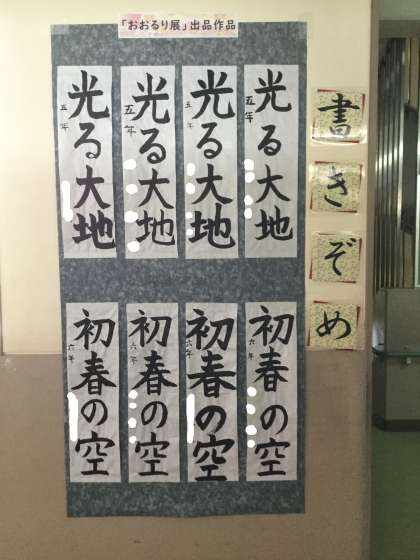 「おおるり展」出品作品
書きぞめ
光る大地
五年
光る大地
五年
光る大地
五年
光る大地
五年
初春の空
六年
初春の空
六年
初春の空
六年
初春の空
六年